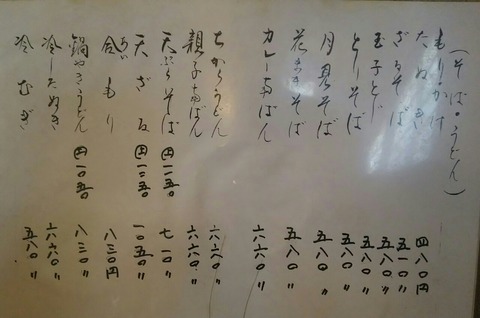 (そば・うどん)
もり・かけ 四八〇円
たぬき 五一〇〃
ざるそば 五八〇〃
玉子とじ 五八〇〃
とりそば 五八〇〃
月見そば 五八〇〃
花まきそば 五八〇〃
カレー南ばん 六六〇〃
ちからうどん 六六〇〃
親子南ばん 六六〇〃
天ぷらそば 上一〇五〇 七一〇〃
天ざる 上一二五〇 一〇五〇〃
合もり 八三〇円
鍋やきうどん 上一〇五〇 八三〇〃
冷したぬき 六六〇〃
冷むぎ 五八〇〃